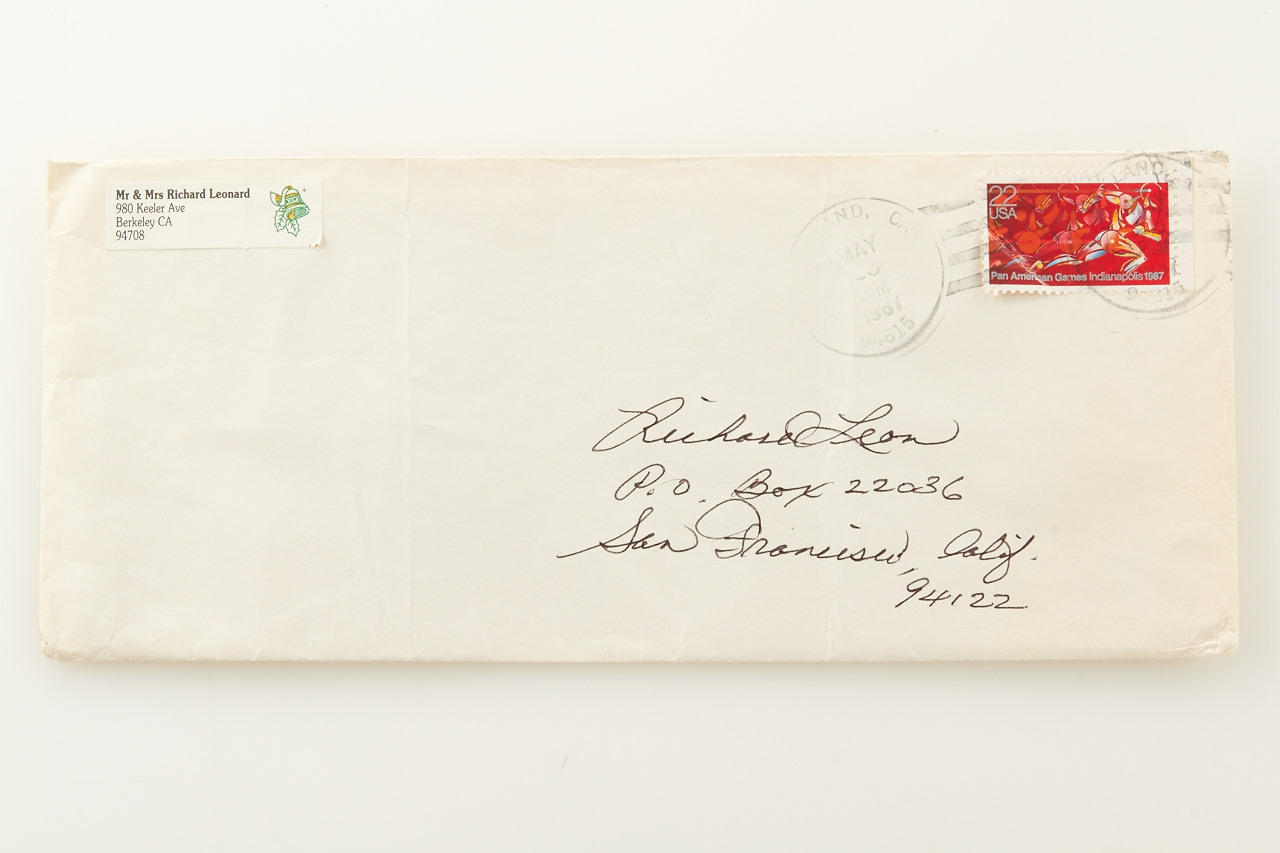 Mr & Mrs Richard Leonard
980 Keeler Ave
Berkeley CA
94708
22
USA
Pan American Games Indianapolis 1987
MAY
94615
Richard Leon
P.O. Box 22036
San Francisco, Calif.
94122